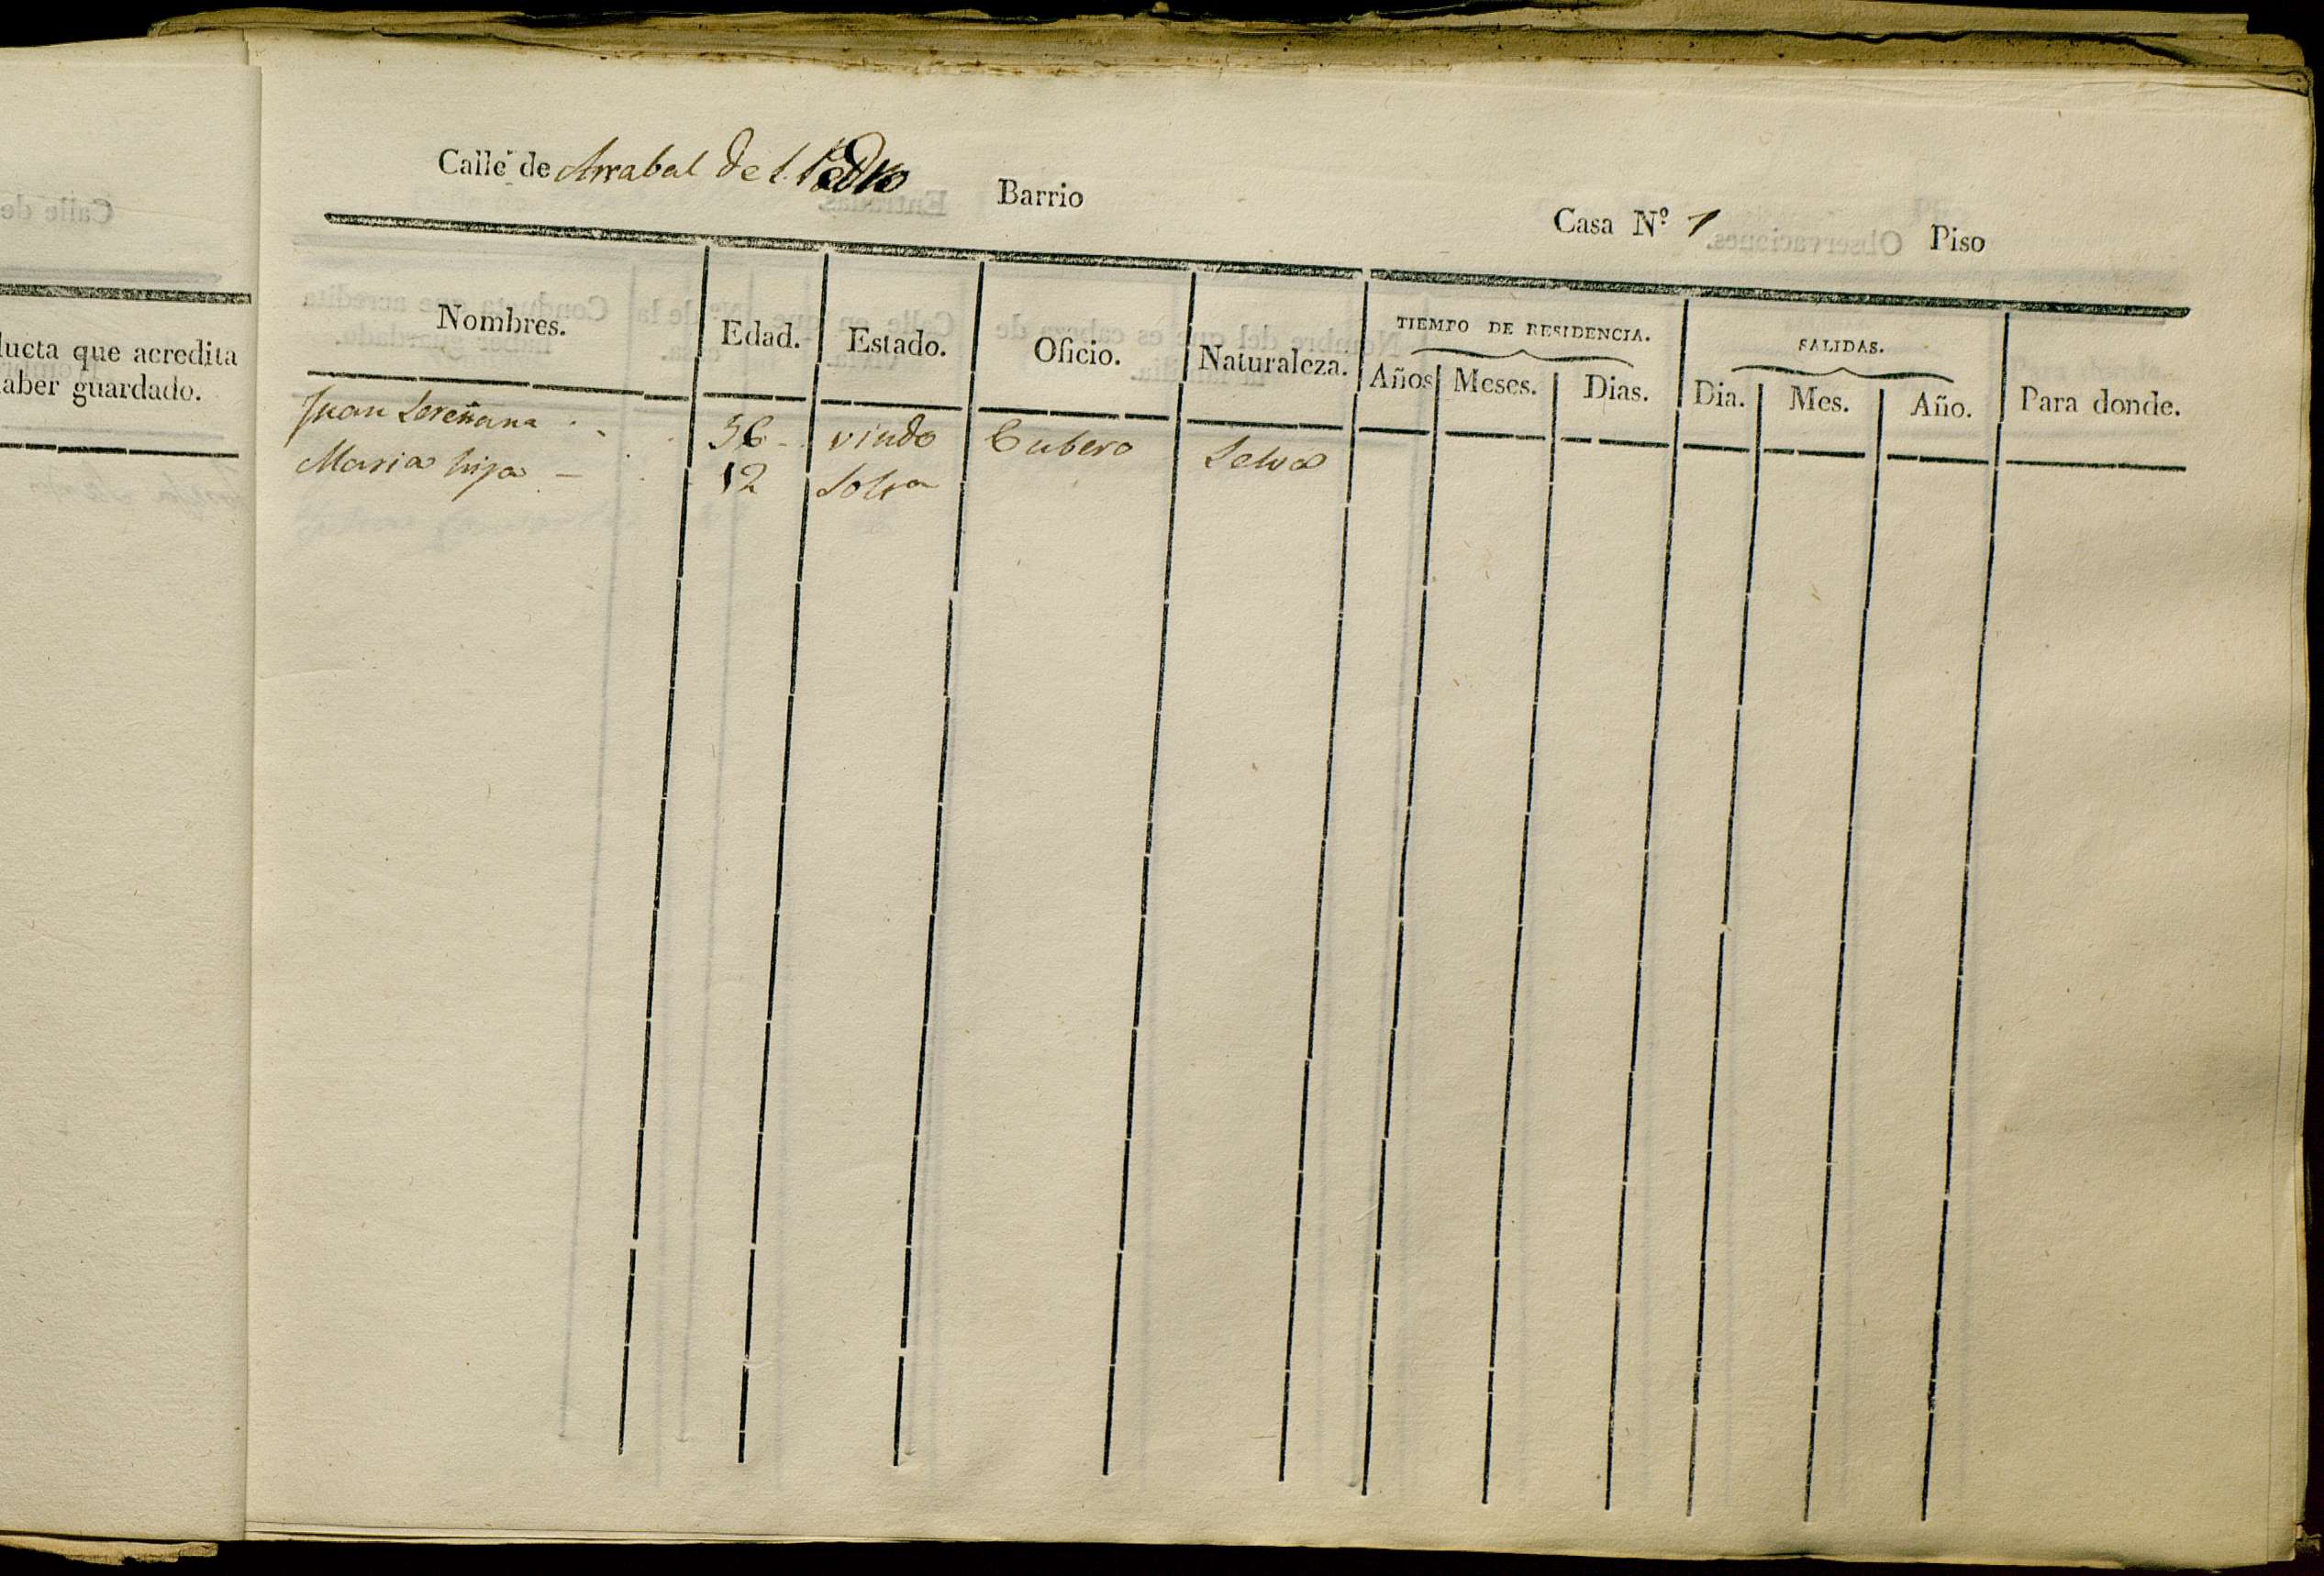 Calle de Arrabal de S. Pedro Barrio Casa Nº 1 Piso
Nombres. Edad. Estado. Oficio. Naturaleza. TIEMPO DE RESIDENCIA. Años Meses. Dias. SALIDAS. Dia. Mes. Año. Para donde.
Juan 36 viudo Cubero Selva
Maria hija 12 Solra
ducta que acredita
haber guardado.